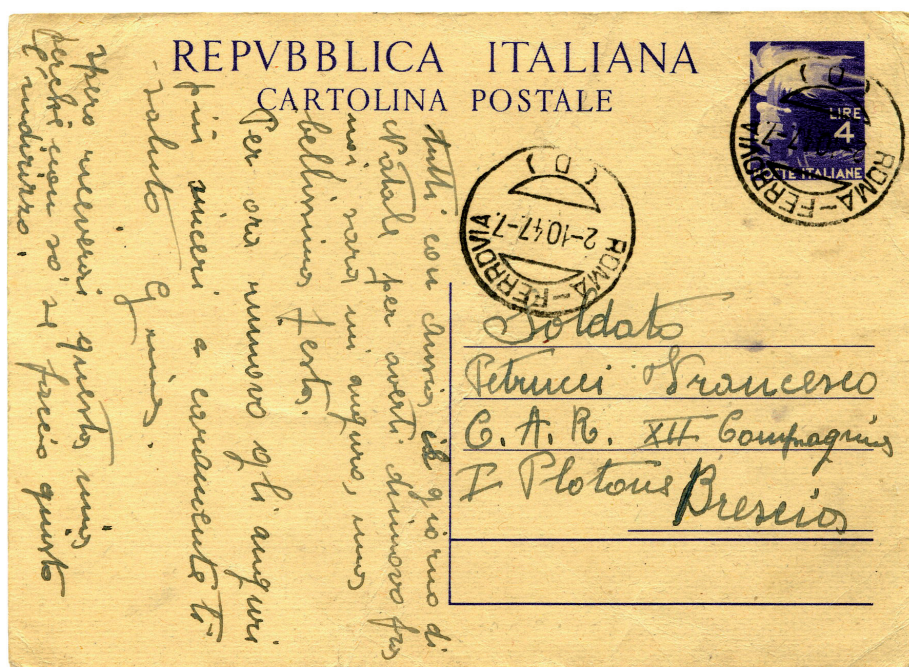 REPVBBLICA ITALIANA
CARTOLINA POSTALE
LIRE
4
POSTE ITALIANE
ROMA-FERROVIA
(D)
ROMA-FERROVIA
(D)
2-10.47-7.
Soldato
Petrucci Francesco
C. A. R. XII Compagnia
I Plotone
Brescia
tutti con il giorno di
Natale per averti dinuovo fra
noi, sarà mi auguro, una
bellissima festa.
Per ora nunovo gli auguri
più sinceri e caramente ti
saluto
spero riceverai questa mia
perchè non sò se faccio giusto
l'indirizzo.